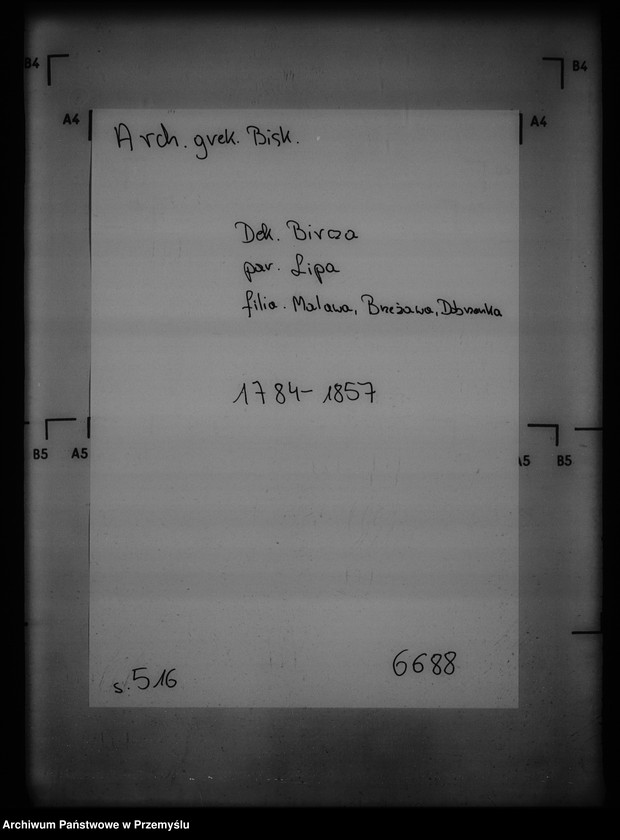 B4 B4
A4 A4
Arch. grek. Bisk.
Dek. Bircza
par. Lipa
filia. Malawa, Brzeżawa, Dobrzanka
1784-1857
B5 A5 A5 B5
s. 516 6688
Archiwum Państwowe w Przemyślu